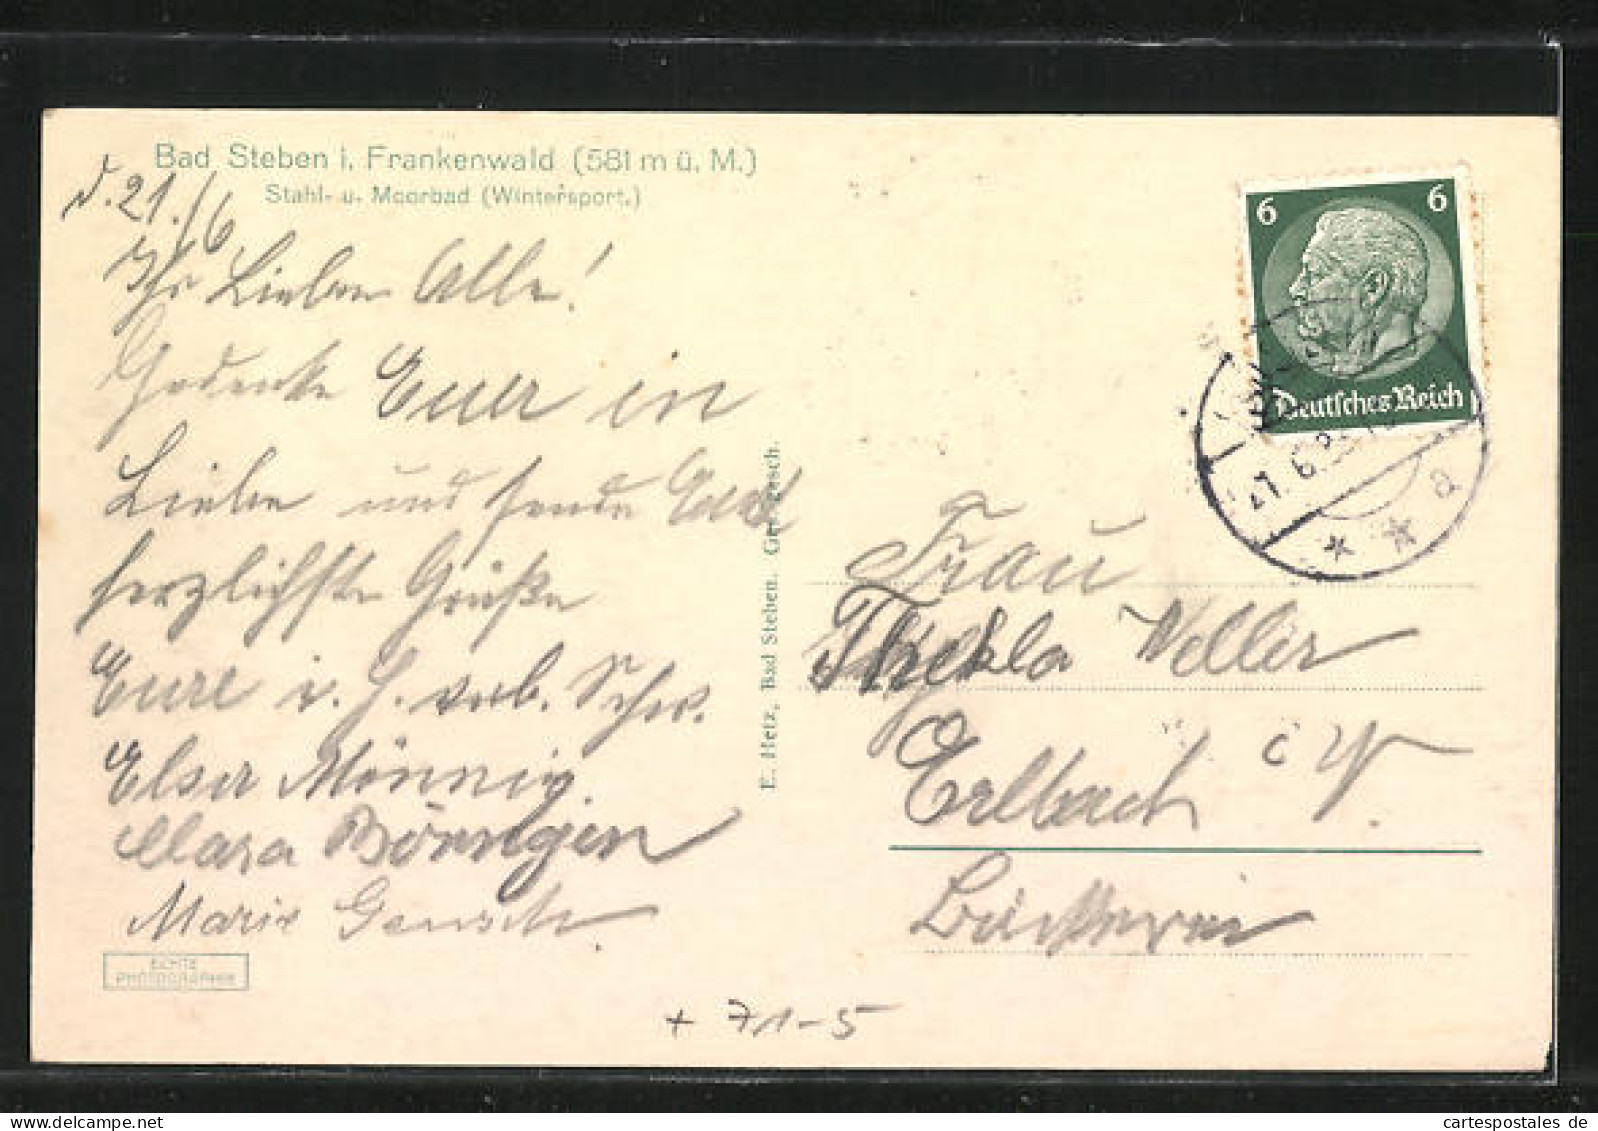 Bad Steben i. Frankenwald (581 m ü. M.)
Stahl- u. Moorbad (Wintersport.)
d. 21./6
Ihr Lieben Alle!
Gedenke Euer in
Liebe und sende Euch
herzlichste Grüße
Eure i. H. verb. Schw.
Elser Männig.
Clara Börngen
Marie Gensch.
ECHTE
PHOTOGRAPHIE
E. Hetz, Bad Steben. Ges. gesch.
6 6
Deutsches Reich
21. 6.
a
Frau
Thekla Weller
Erlbach i V.
Bäckerei
+ 71-5
cartespostales de